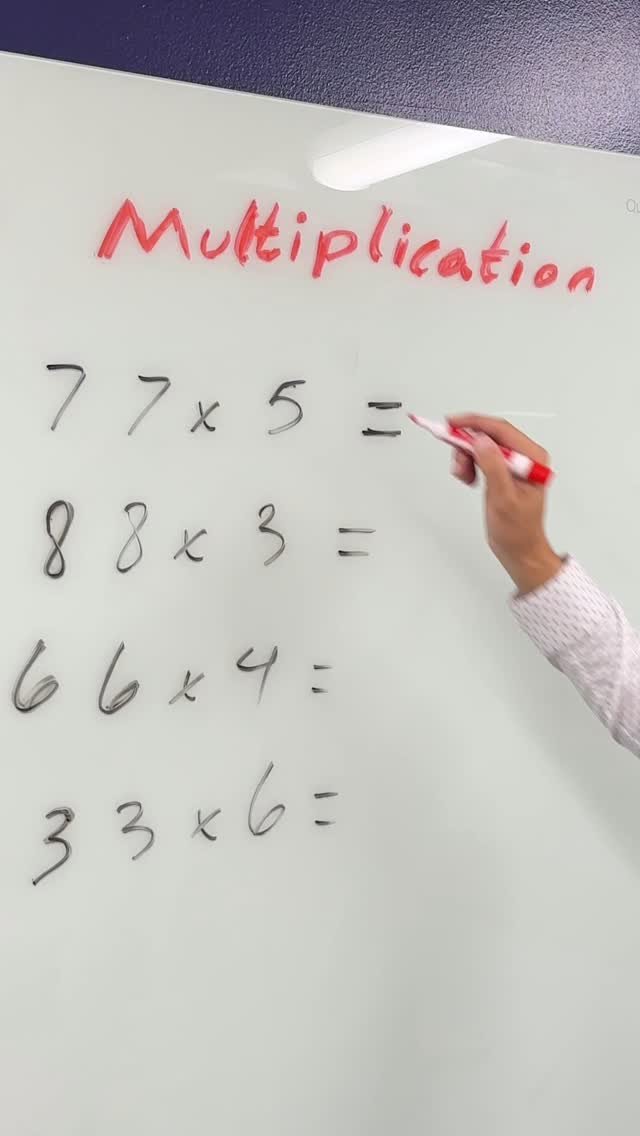 Multiplication
7 7 x 5 =
8 8 x 3 =
6 6 x 4 =
3 3 x 6 =